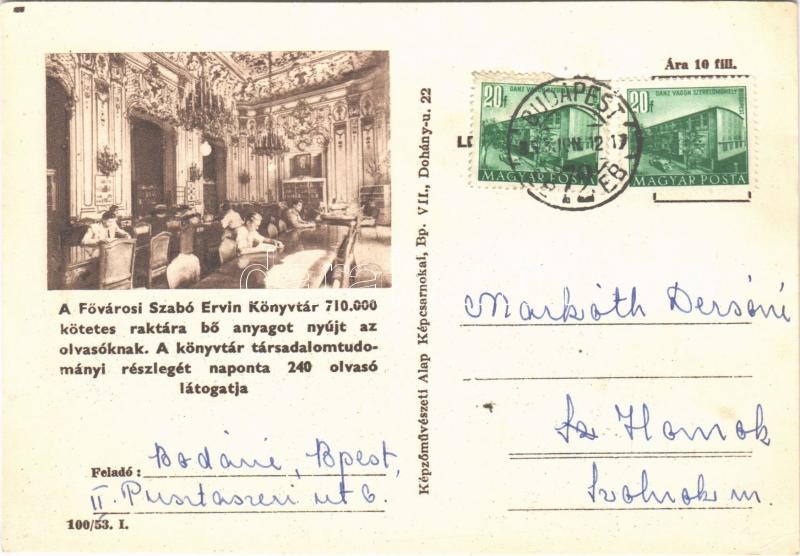 Ára 10 fill.
20f GANZ VAGON SZERELŐMŰHELY
MAGYAR POSTA
20f GANZ VAGON SZERELŐMŰHELY
MAGYAR POSTA
BUDAPEST
A Fővárosi Szabó Ervin Könyvtár 710.000
kötetes raktára bő anyagot nyújt az
olvasóknak. A könyvtár társadalomtudo-
mányi részlegét naponta 240 olvasó
látogatja
Feladó: Bodáné, Bpest,
II. Pusztaszeri út 6.
100/53. I.
Képzőművészeti Alap Képcsarnokai, Bp. VII., Dohány-u. 22
Markóth Dersőné
Sz. Homok
Szolnok m.